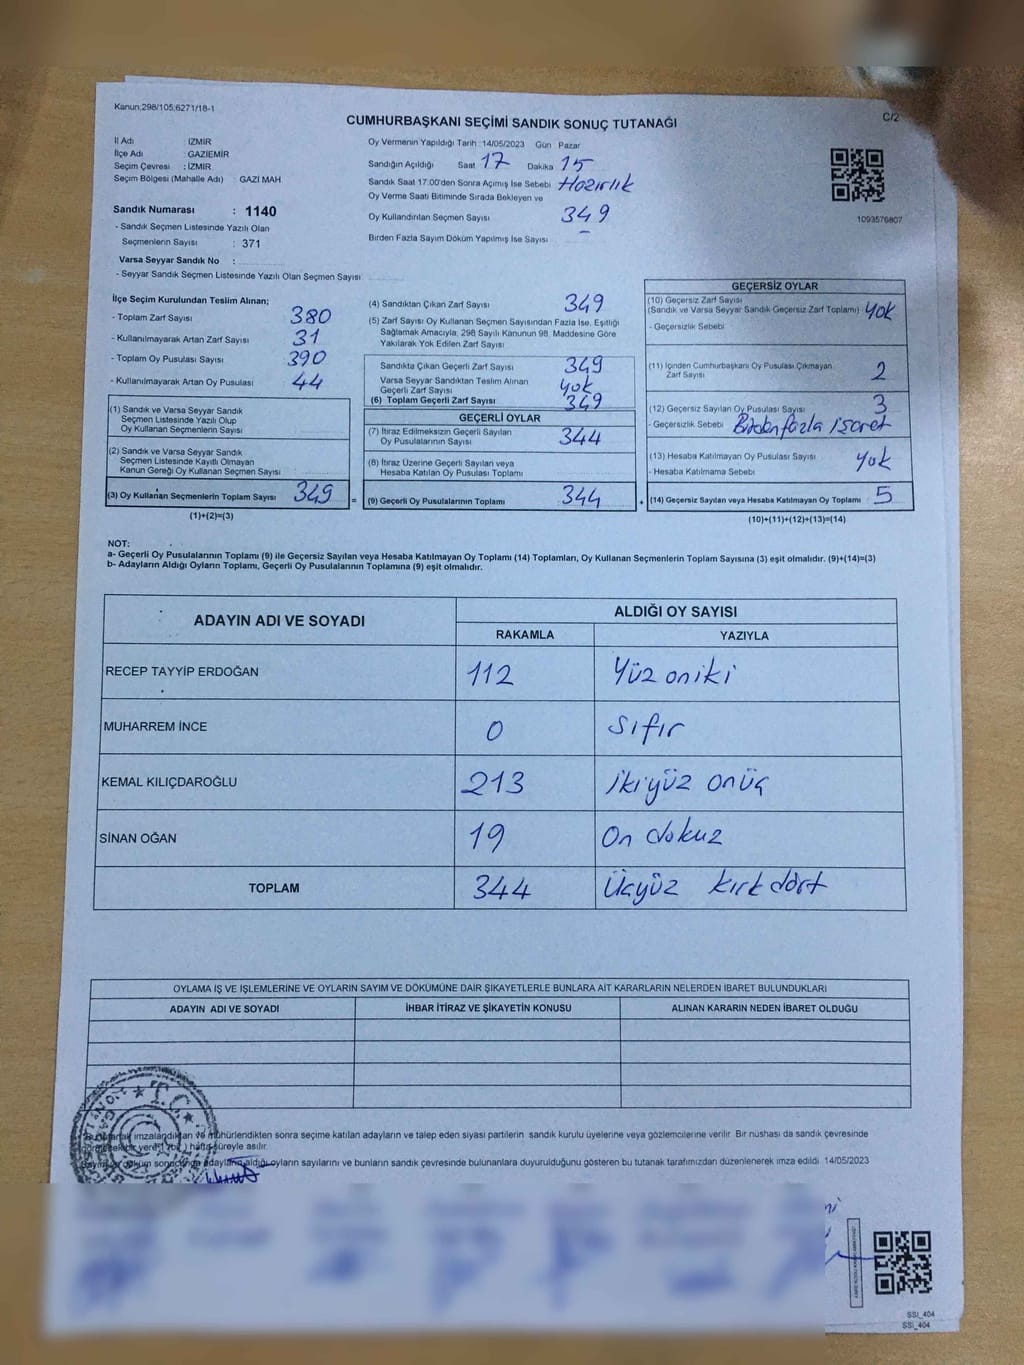 Kanun,298/105,6271/18-1
C/2
CUMHURBAŞKANI SEÇİMİ SANDIK SONUÇ TUTANAĞI
İl Adı : İZMİR
İlçe Adı : GAZİEMİR
Seçim Çevresi : İZMİR
Seçim Bölgesi (Mahalle Adı) GAZİ MAH
Sandık Numarası : 1140
- Sandık Seçmen Listesinde Yazılı Olan
Seçmenlerin Sayısı : 371
Varsa Seyyar Sandık No :
- Seyyar Sandık Seçmen Listesinde Yazılı Olan Seçmen Sayısı
Oy Vermenin Yapıldığı Tarih :14/05/2023 Gün Pazar
Sandığın Açıldığı Saat 17 Dakika 15
Sandık Saat 17:00'den Sonra Açımış İse Sebebi Hazırlık
Oy Verme Saati Bitiminde Sırada Bekleyen ve
Oy Kullandırılan Seçmen Sayısı 349
Birden Fazla Sayım Döküm Yapılmış İse Sayısı -
1093576807
İlçe Seçim Kurulundan Teslim Alınan;
- Toplam Zarf Sayısı 380
- Kullanılmayarak Artan Zarf Sayısı 31
- Toplam Oy Pusulası Sayısı 390
- Kullanılmayarak Artan Oy Pusulası 44
(1) Sandık ve Varsa Seyyar Sandık
Seçmen Listesinde Yazılı Olup
Oy Kullanan Seçmenlerin Sayısı
(2) Sandık ve Varsa Seyyar Sandık
Seçmen Listesinde Kayıtlı Olmayan
Kanun Gereği Oy Kullanan Seçmen Sayısı
(3) Oy Kullanan Seçmenlerin Toplam Sayısı 349 =
(1)+(2)=(3)
(4) Sandıktan Çıkan Zarf Sayısı 349
(5) Zarf Sayısı Oy Kullanan Seçmen Sayısından Fazla İse, Eşitliği
Sağlamak Amacıyla; 298 Sayılı Kanunun 98. Maddesine Göre
Yakılarak Yok Edilen Zarf Sayısı
Sandıkta Çıkan Geçerli Zarf Sayısı 349
Varsa Seyyar Sandıktan Teslim Alınan
Geçerli Zarf Sayısı yok
(6) Toplam Geçerli Zarf Sayısı 349
GEÇERLİ OYLAR
(7) İtiraz Edilmeksizin Geçerli Sayılan
Oy Pusulalarının Sayısı 344
(8) İtiraz Üzerine Geçerli Sayılan veya
Hesaba Katılan Oy Pusulası Toplamı
(9) Geçerli Oy Pusulalarının Toplamı 344 +
GEÇERSİZ OYLAR
(10) Geçersiz Zarf Sayısı
(Sandık ve Varsa Seyyar Sandık Geçersiz Zarf Toplamı) yok
- Geçersizlik Sebebi
(11) İçinden Cumhurbaşkanı Oy Pusulası Çıkmayan
Zarf Sayısı 2
(12) Geçersiz Sayılan Oy Pusulası Sayısı 3
- Geçersizlik Sebebi Birden fazla işaret
(13) Hesaba Katılmayan Oy Pusulası Sayısı yok
- Hesaba Katılmama Sebebi
(14) Geçersiz Sayılan veya Hesaba Katılmayan Oy Toplamı 5
(10)+(11)+(12)+(13)=(14)
NOT:
a- Geçerli Oy Pusulalarının Toplamı (9) ile Geçersiz Sayılan veya Hesaba Katılmayan Oy Toplamı (14) Toplamları, Oy Kullanan Seçmenlerin Toplam Sayısına (3) eşit olmalıdır. (9)+(14)=(3)
b- Adayların Aldığı Oyların Toplamı, Geçerli Oy Pusulalarının Toplamına (9) eşit olmalıdır.
ADAYIN ADI VE SOYADI
ALDIĞI OY SAYISI
RAKAMLA YAZIYLA
RECEP TAYYİP ERDOĞAN 112 Yüz oniki
MUHARREM İNCE 0 Sıfır
KEMAL KILIÇDAROĞLU 213 İkiyüz onüç
SİNAN OĞAN 19 On dokuz
TOPLAM 344 Üçyüz kırk dört
OYLAMA İŞ VE İŞLEMLERİNE VE OYLARIN SAYIM VE DÖKÜMÜNE DAİR ŞİKAYETLERLE BUNLARA AİT KARARLARIN NELERDEN İBARET BULUNDUKLARI
ADAYIN ADI VE SOYADI İHBAR İTİRAZ VE ŞİKAYETİN KONUSU ALINAN KARARIN NEDEN İBARET OLDUĞU
imzalandıktan ve mühürlendikten sonra seçime katılan adayların ve talep eden siyasi partilerin sandık kurulu üyelerine veya gözlemcilerine verilir. Bir nüshası da sandık çevresinde
yere hafta süreyle asılır.
döküm adayların aldığı oyların sayılarını ve bunların sandık çevresinde bulunanlara duyurulduğunu gösteren bu tutanak tarafımızdan düzenlenerek imza edildi. 14/05/2023
SSİ_404
SSİ_404